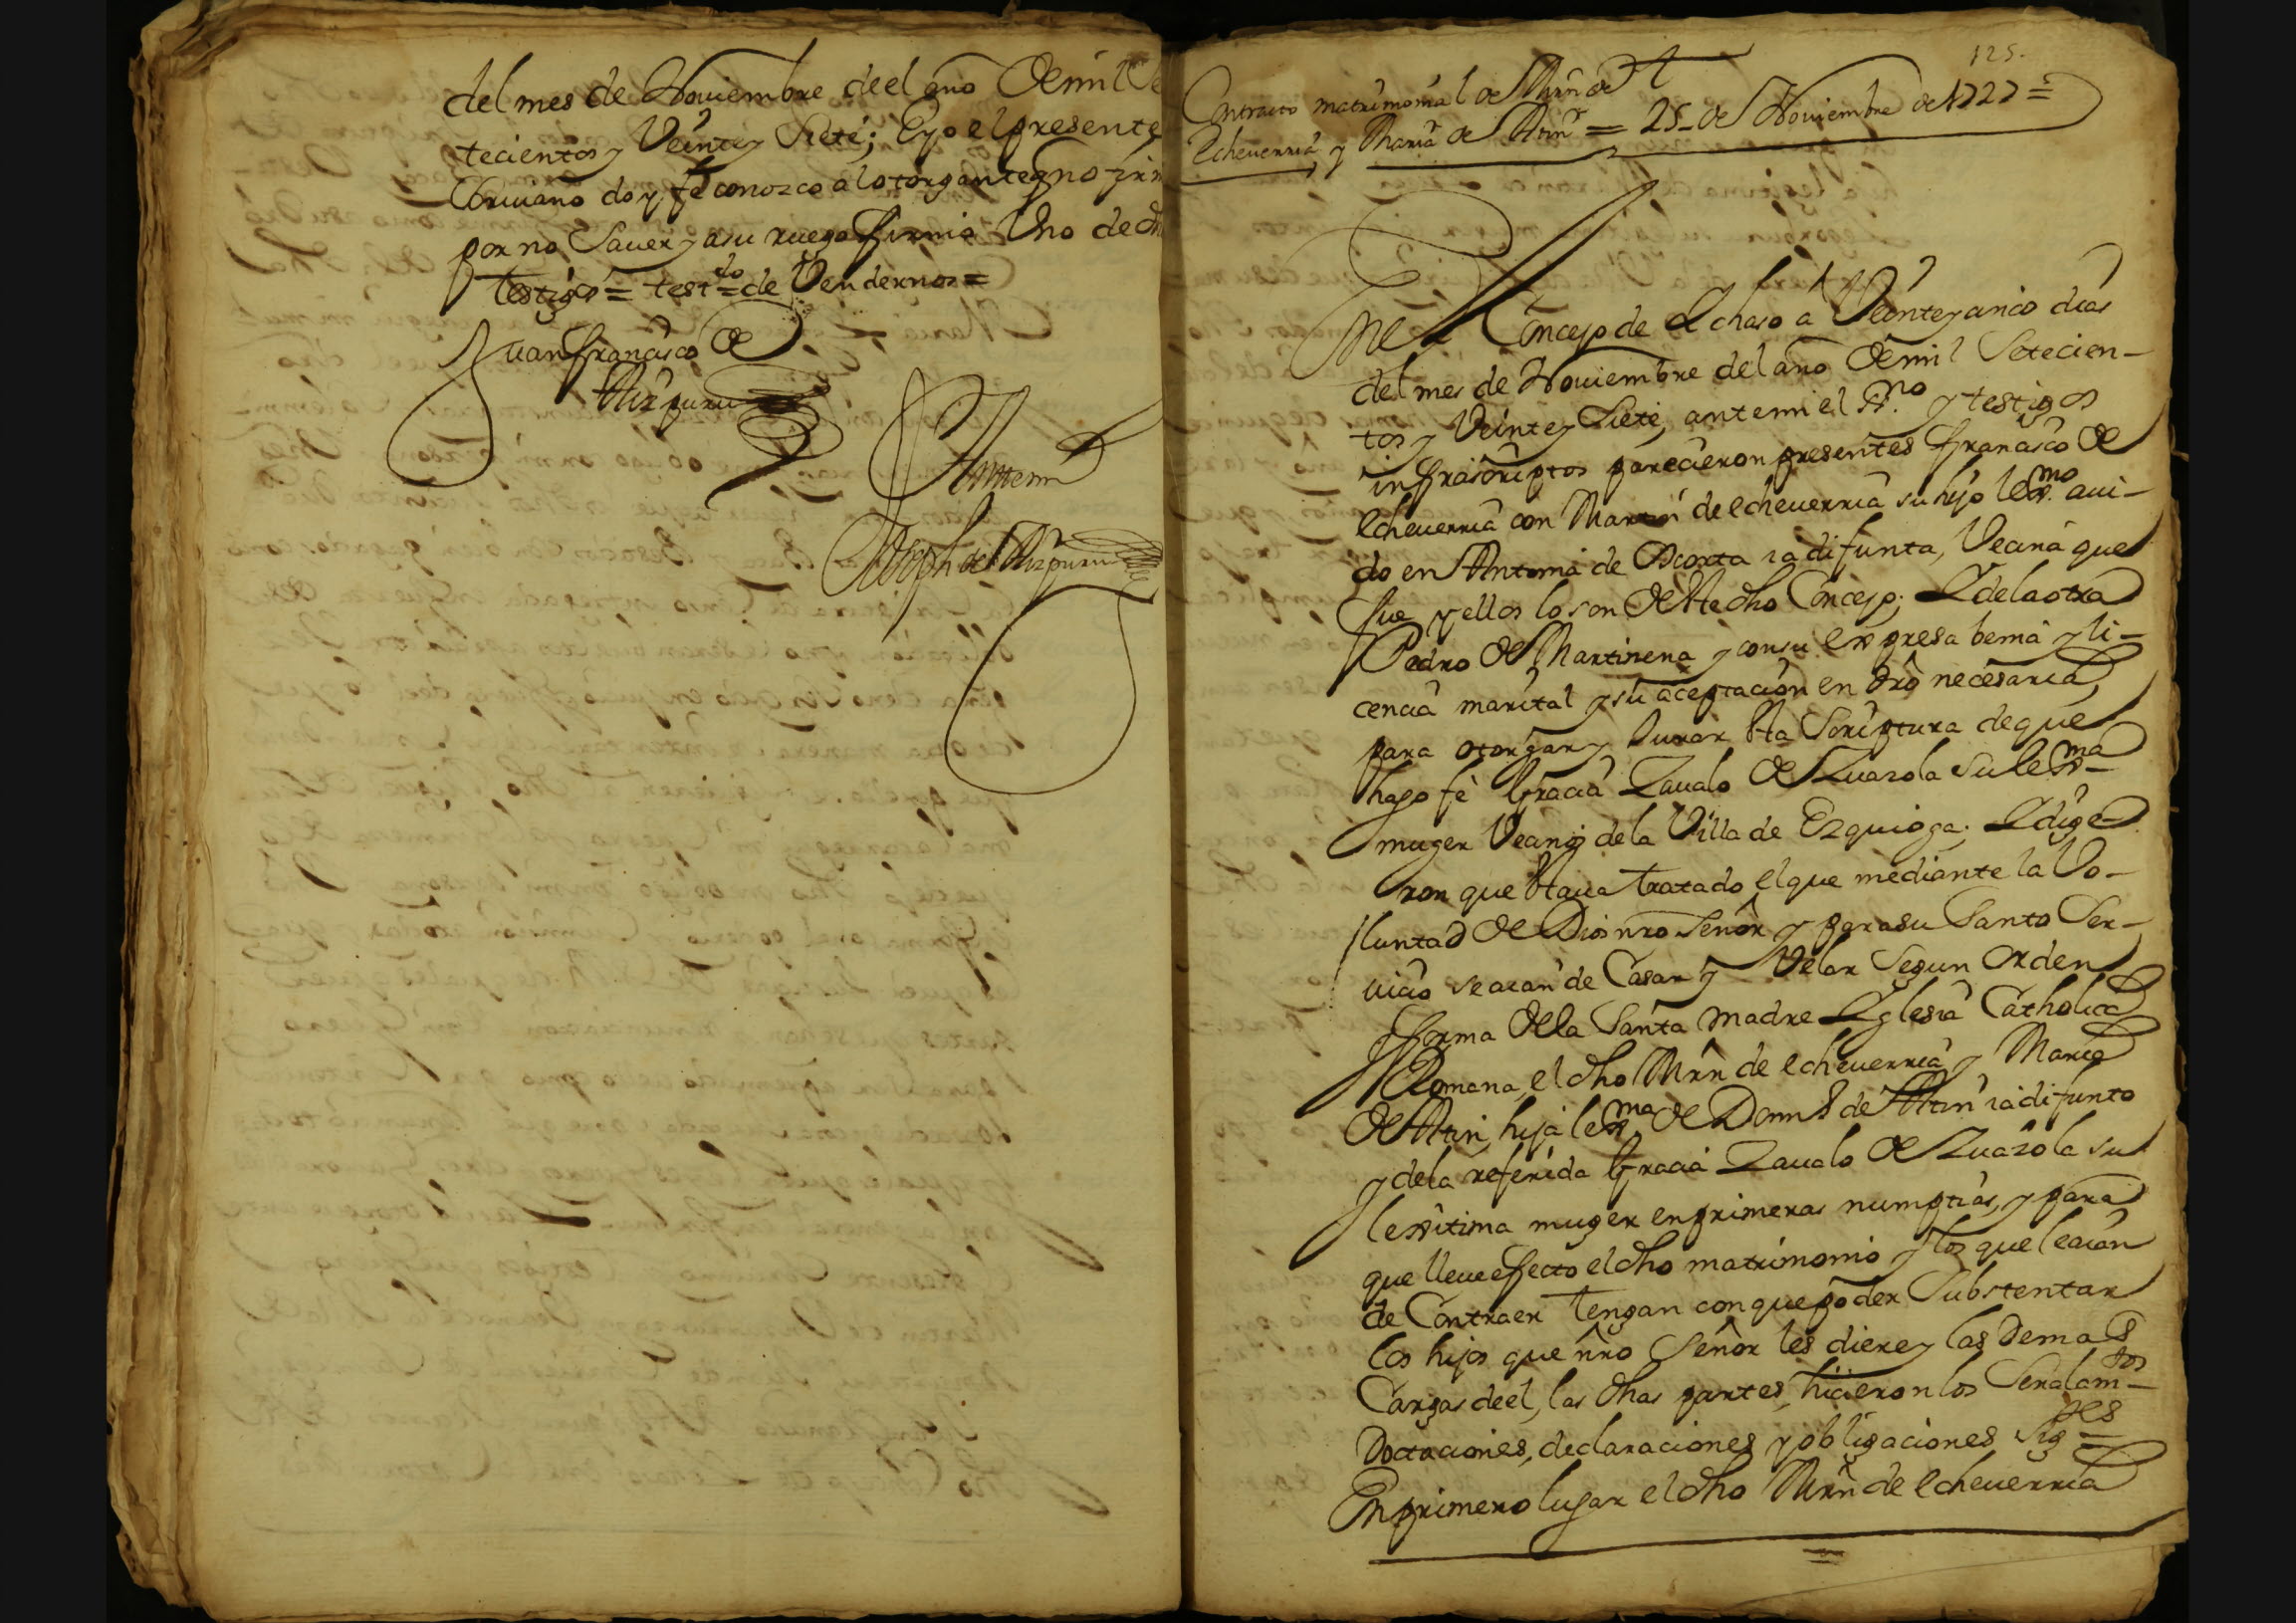 del mes de Nouiembre de el año de mil Se
tecientos y Veinte y Siete; E yo el presente
Scriuano doy fe conozco al otorgante q no firm
por no Sauer y a su ruego firmó Uno de dhos
testigos = test.do = de Vendernos =
Juan francisco de
Aizpuru
Ante mi
Joseph de Aizpuru
125.
Contracto matrimonial de Mrn de
Echeuerria y Maria de Atin = 25 de Nouiembre de 1727 =
En el Concejo de Ichaso a Veinte y cinco dias
del mes de Nouiembre del año de mil Setecien-
tos y Veinte y Siete, ante mi el Ss.no y testigos
infrascriptos parecieron presentes francisco de
echeuerria con Martin de echeuerria su hijo lexmo. aui-
do en Antonia de Ascorta ia difunta, Vecina que
fue y ellos lo son de este dho Concejo; I de la otra
Pedro de Martirena y con su expresa benia y li-
cencia marital y su aceptacion en dro necesaria,
para otorgar y Jurar esta Scriptura de que
hago fe Gracia Zaualo de Zuazola su lexma
muger Vecinos de la Villa de Ezquioga; I dige-
ron que estaua tratado el que mediante la Vo-
luntad de Dios nro Señor y para su Santo Ser-
uicio se aian de Casar y Velar Segun orden
forma de la Santa Madre Iglesia Catholica
Romana, el dho Mrn de echeuerria y Maria
de Atin, hija lexma de Domgo de Atin ia difunto
y de la referida Gracia Zaualo de Zuazola su
lexitima muger en primeras numptias, y para
que lleue efecto el dho matrimonio y los que le aian
de Contraer tengan con que poder Substentar
los hijos que nro Señor les diere y las demas
Cargas de el, las dhas partes, hicieron los Señalamtos
Doctaciones, declaraciones y obligaciones Sigtes =
En primero lugar el dho Mrn de echeuerria